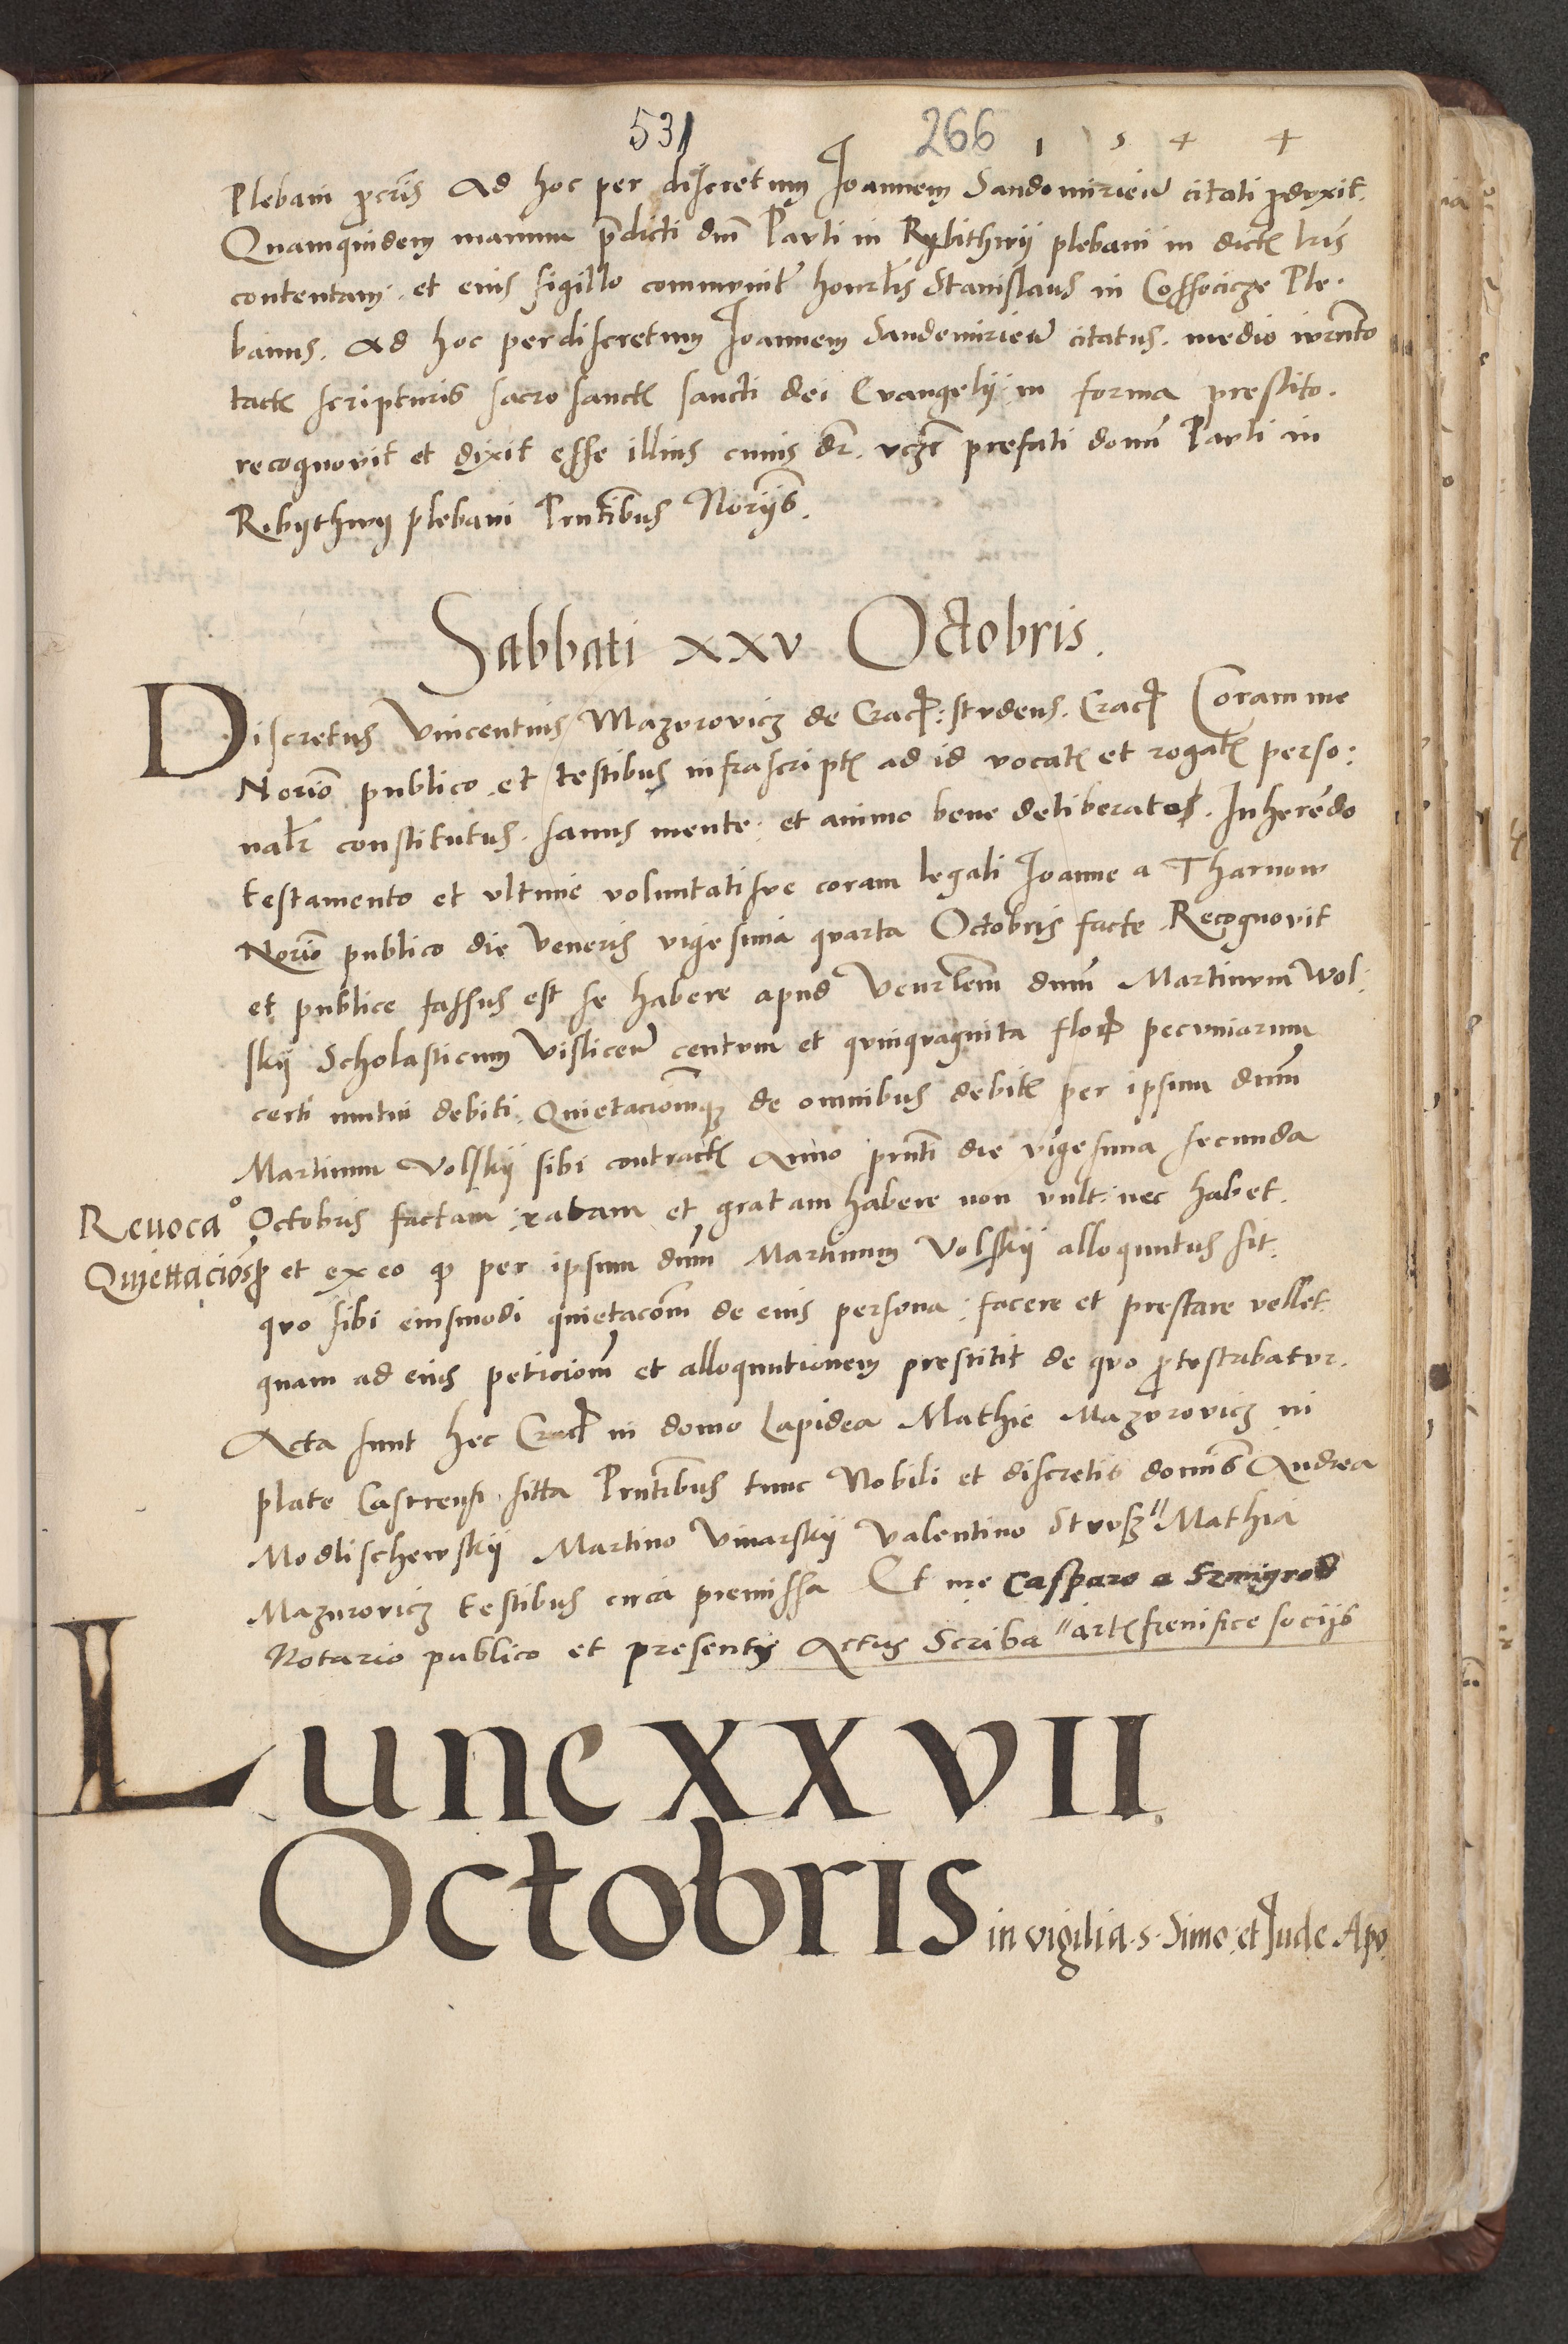 531 266 1 5 4 4
Plebani ꝓcris Ad hoc per discretum Joannem Sandomirien̄ citati ꝓduxit.
Quamquidem manum p̄dicti dnī Pauli in Rybithwÿ plebani in dictꝭ lr̄is
contentam. et eius sigillo communit̄ honrl̄is Stanislaus in Cossocicze Ple.
banus. Ad hoc perdiscretum Joannem Sandemirien̄ citatus. medio iurn̄to
tactꝭ scripturis sacro sanctꝭ sancti dei Evangelÿ in forma prestito.
recognovit et dixit esse illius cuius dr̄. vcꝫt prefati domī Pauli in
Ribythwy plebani Prn̄tibus Norÿs.
Sabbati xxv Octobris.
Discretus Vincentius Mazurovicz de Cracꝭ: studens. Cracꝭ Coram me
Norīo publico et testibus infrascriptꝭ ad id vocatꝭ et rogatꝭ perso:
nalr̄ constitutus. sanus mente: et animo bene deliberatos. Inherēdo
testamento et ultime voluntati sue coram legali Joanne a Tharnow
Norīo publico die Veneris vigesima quarta Octobris facte Recognovit
et publice fassus est se habere apud Venrlem dnūm Martinum Wol:
skÿ Scholasticum Visliceñ centum et quinquaginta florꝭ pecuniarum
certi mutui debiti. Quietacionēmqꝫ de omnibus debitꝭ per ipsum dnūm
Martinum Volskÿ sibi contractꝭ Anno prn̄ti die vigesima secunda
Revocaᵒ Octobris factam ratam et gratam habere non vult: nec habet.
Quiettacioīsꝙ et ex eo ꝙ per ipsum dnūm Martinum Volskÿ alloquutus sit.
quo sibi eiusmodi quietacōm de eius persona: facere et prestare vellet.
quam ad eius peticiom̄ et alloquutionem prestitit de quo ꝓtestabatur.
Acta sunt hec Cracꝭ in domo Lapidea Mathie Mazurovicz in
platē Castrensi sitta Prn̄tibus tunc Nobili et discretis domīs Andrea
Modlischewskÿ Martino Vinarskÿ Valentino Strusz" Mathia
Mazurovicz testibus circa premissa Et me Casparo a Szmigrod
Notario publico et presentis Actus Scriba "artꝭ frenifice socÿs
Lune XXVII
Octobris in vigilia .s. Simo: et Jude Apo